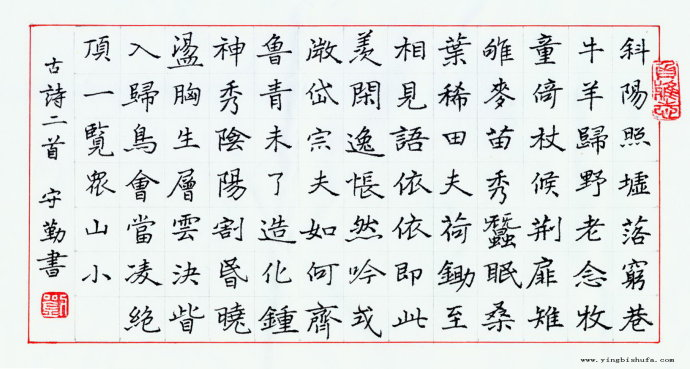 斜陽照墟落窮巷
牛羊歸野老念牧
童倚杖候荊扉雉
雊麥苗秀蠶眠桑
葉稀田夫荷鋤至
相見語依依即此
羨閑逸悵然吟式
微岱宗夫如何齊
魯青未了造化鍾
神秀陰陽割昏曉
盪胸生層雲決眥
入歸鳥會當凌絕
頂一覽眾山小
古詩二首 守勤書
www.yingbishufa.com